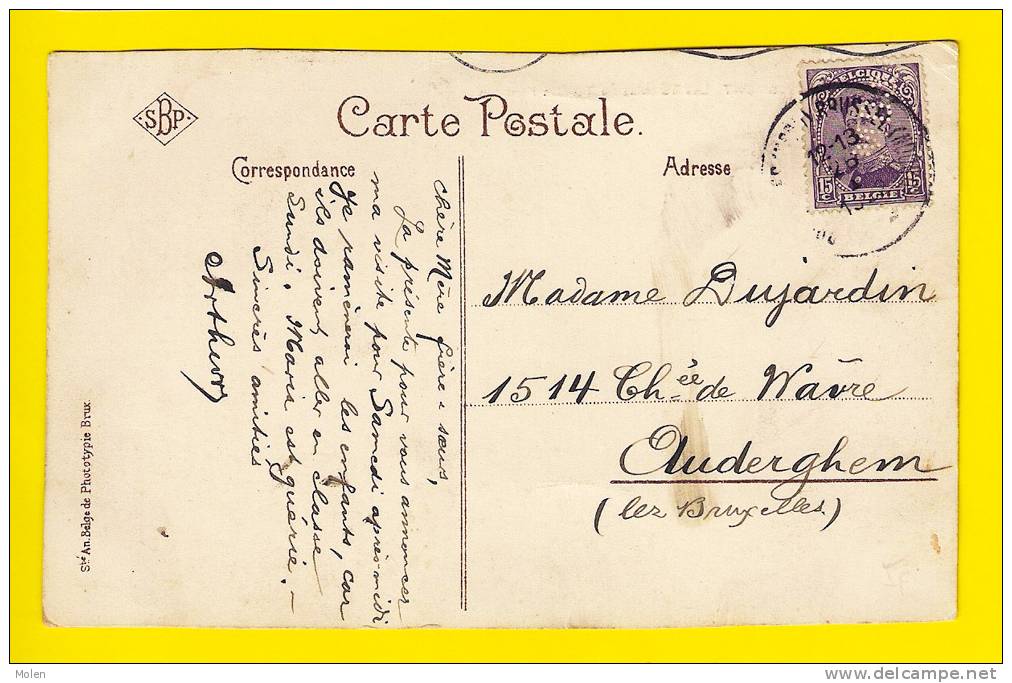 SBP
Carte Postale.
Correspondance
Adresse
BELGIQUE
15c 15c
BELGIE
12-13
Chère Mère frère & sœurs,
La présente pour vous annoncer
ma visite pour Samedi après-midi
Je ramènerai les enfants, car
ils doivent aller en classe
Lundi. Maria est guérie. –
Sincères amitiés
Arthur
Madame Dujardin
1514 Chée de Wavre
Auderghem
(lez Bruxelles)
Sté An. Belge de Phototypie Brux
Molen
www.delcampe.net